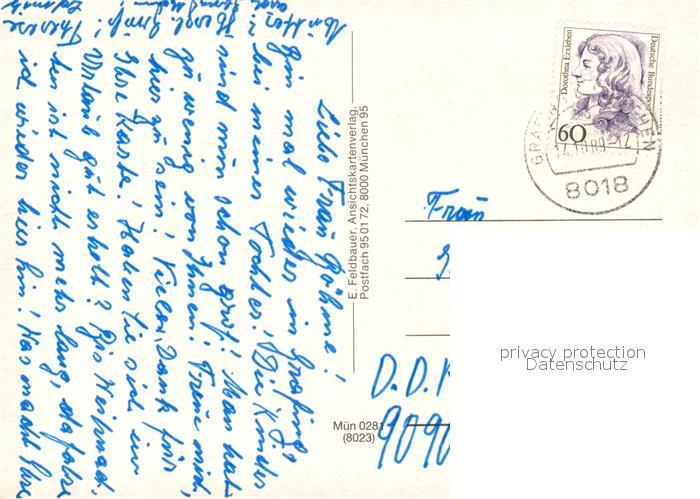 Liebe Frau Böhme!
Bin mal wieder in Grafing,
bei meiner Tochter! Die Kinder
sind nun schon groß! Man hat
zu wenig von Ihnen! Freue mich,
hier zu sein! Vielen Dank für
Ihre Karte! Haben Sie sich im
Urlaub gut erholt? Bis Weihnach-
ten ist nicht mehr lang, da fahre
ich wieder hier hin! Was macht Ihre
Mutter?
Herzl. Grüße!
Therese
E. Feldbauer, Ansichtskartenverlag,
Postfach 950172, 8000 München 95
Mün 0281
(8023)
Dorothea Erxleben
Deutsche Bundespost
60
GRAF CHEN
14.10.89-12
8018
Frau
D.D.R
9090
privacy protection
Datenschutz